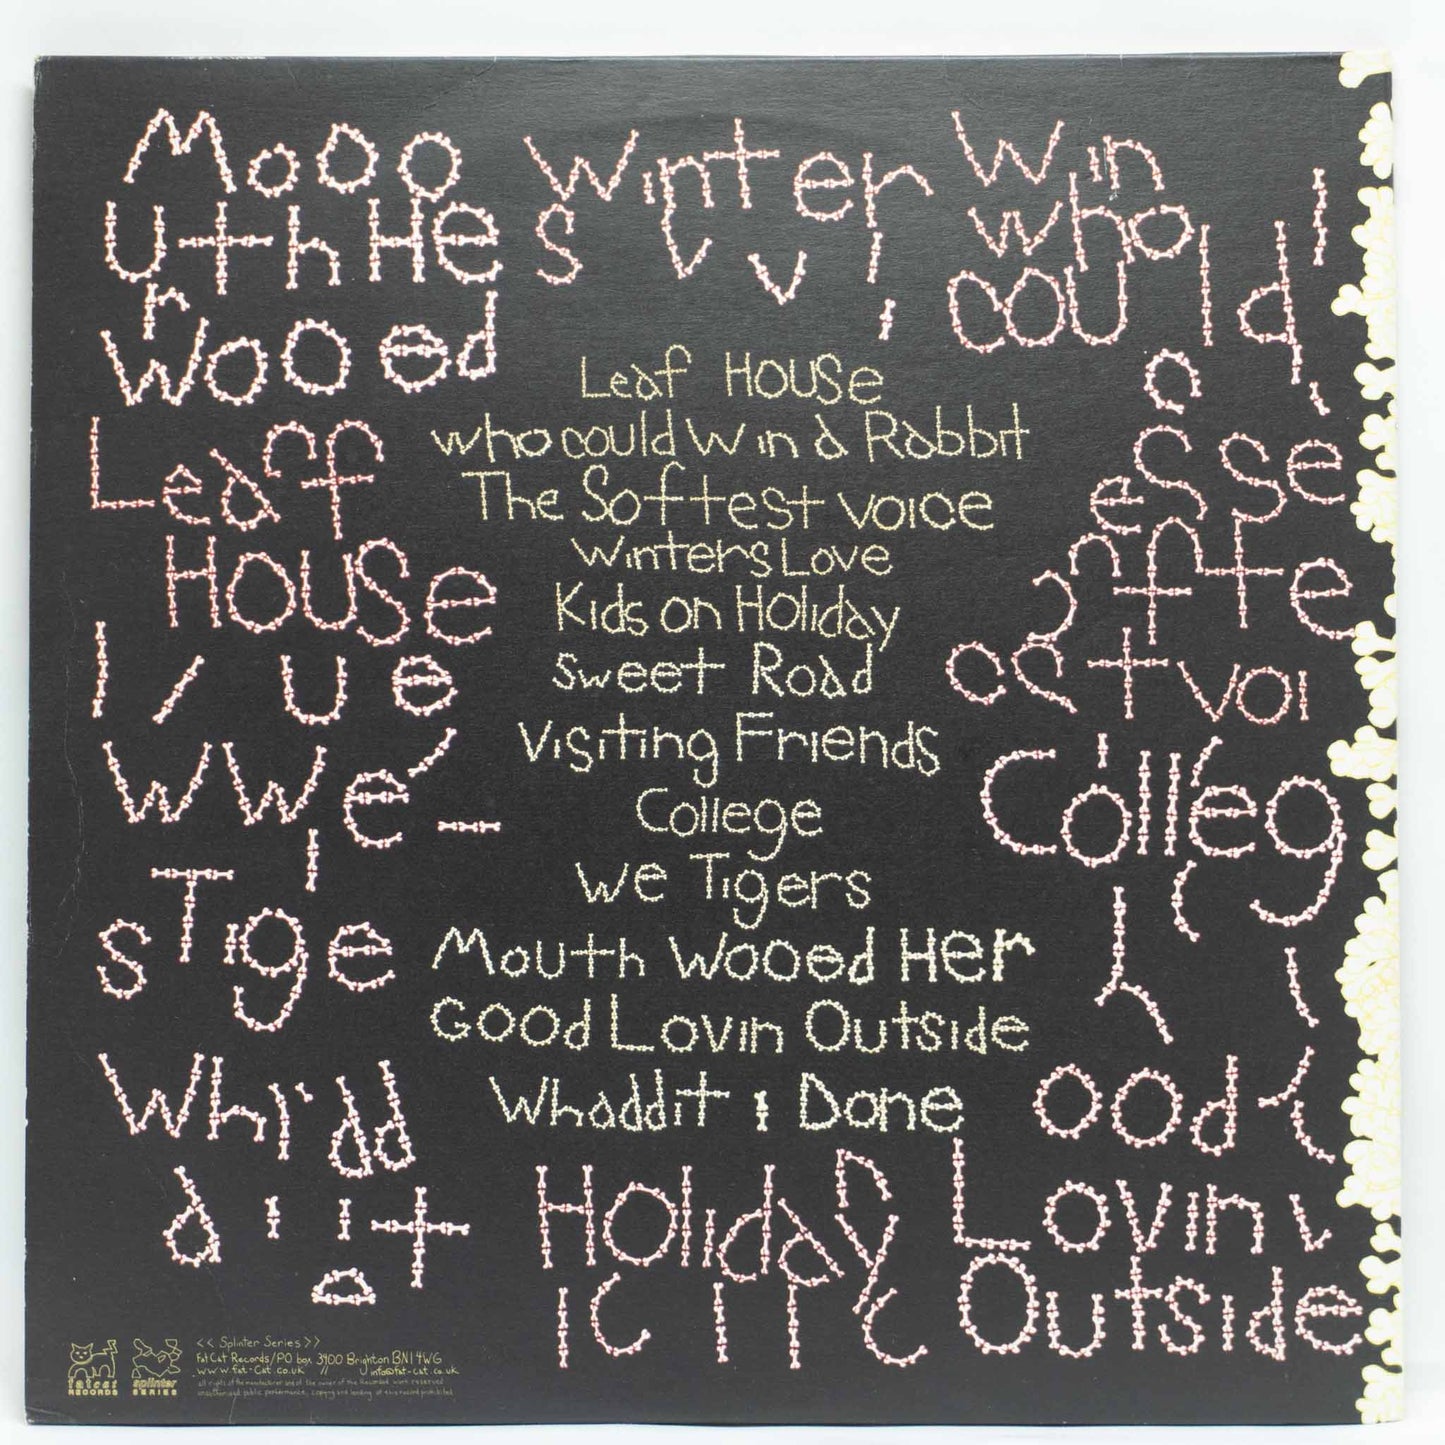 Leaf House
who could Win a Rabbit
The Softest voice
Winters Love
Kids on Holiday
sweet Road
Visiting Friends
College
We Tigers
Mouth Wooed Her
Good Lovin Outside
Whaddit i Done
Mouth Her
Wooed
Winter
s
Win
who
could
Leaf
House
We
Tige
s
Colleg
Holiday
Lovin
Outside
fatcat
RECORDS
splinter
SERIES
<< Splinter Series >>
Fat Cat Records/PO box 3400 Brighton BN1 4WG
www.fat-cat.co.uk // info@fat-cat.co.uk
all rights of the manufacturer and of the owner of the Recorded work reserved
unauthorised public performance, copying and lending of this record prohibited